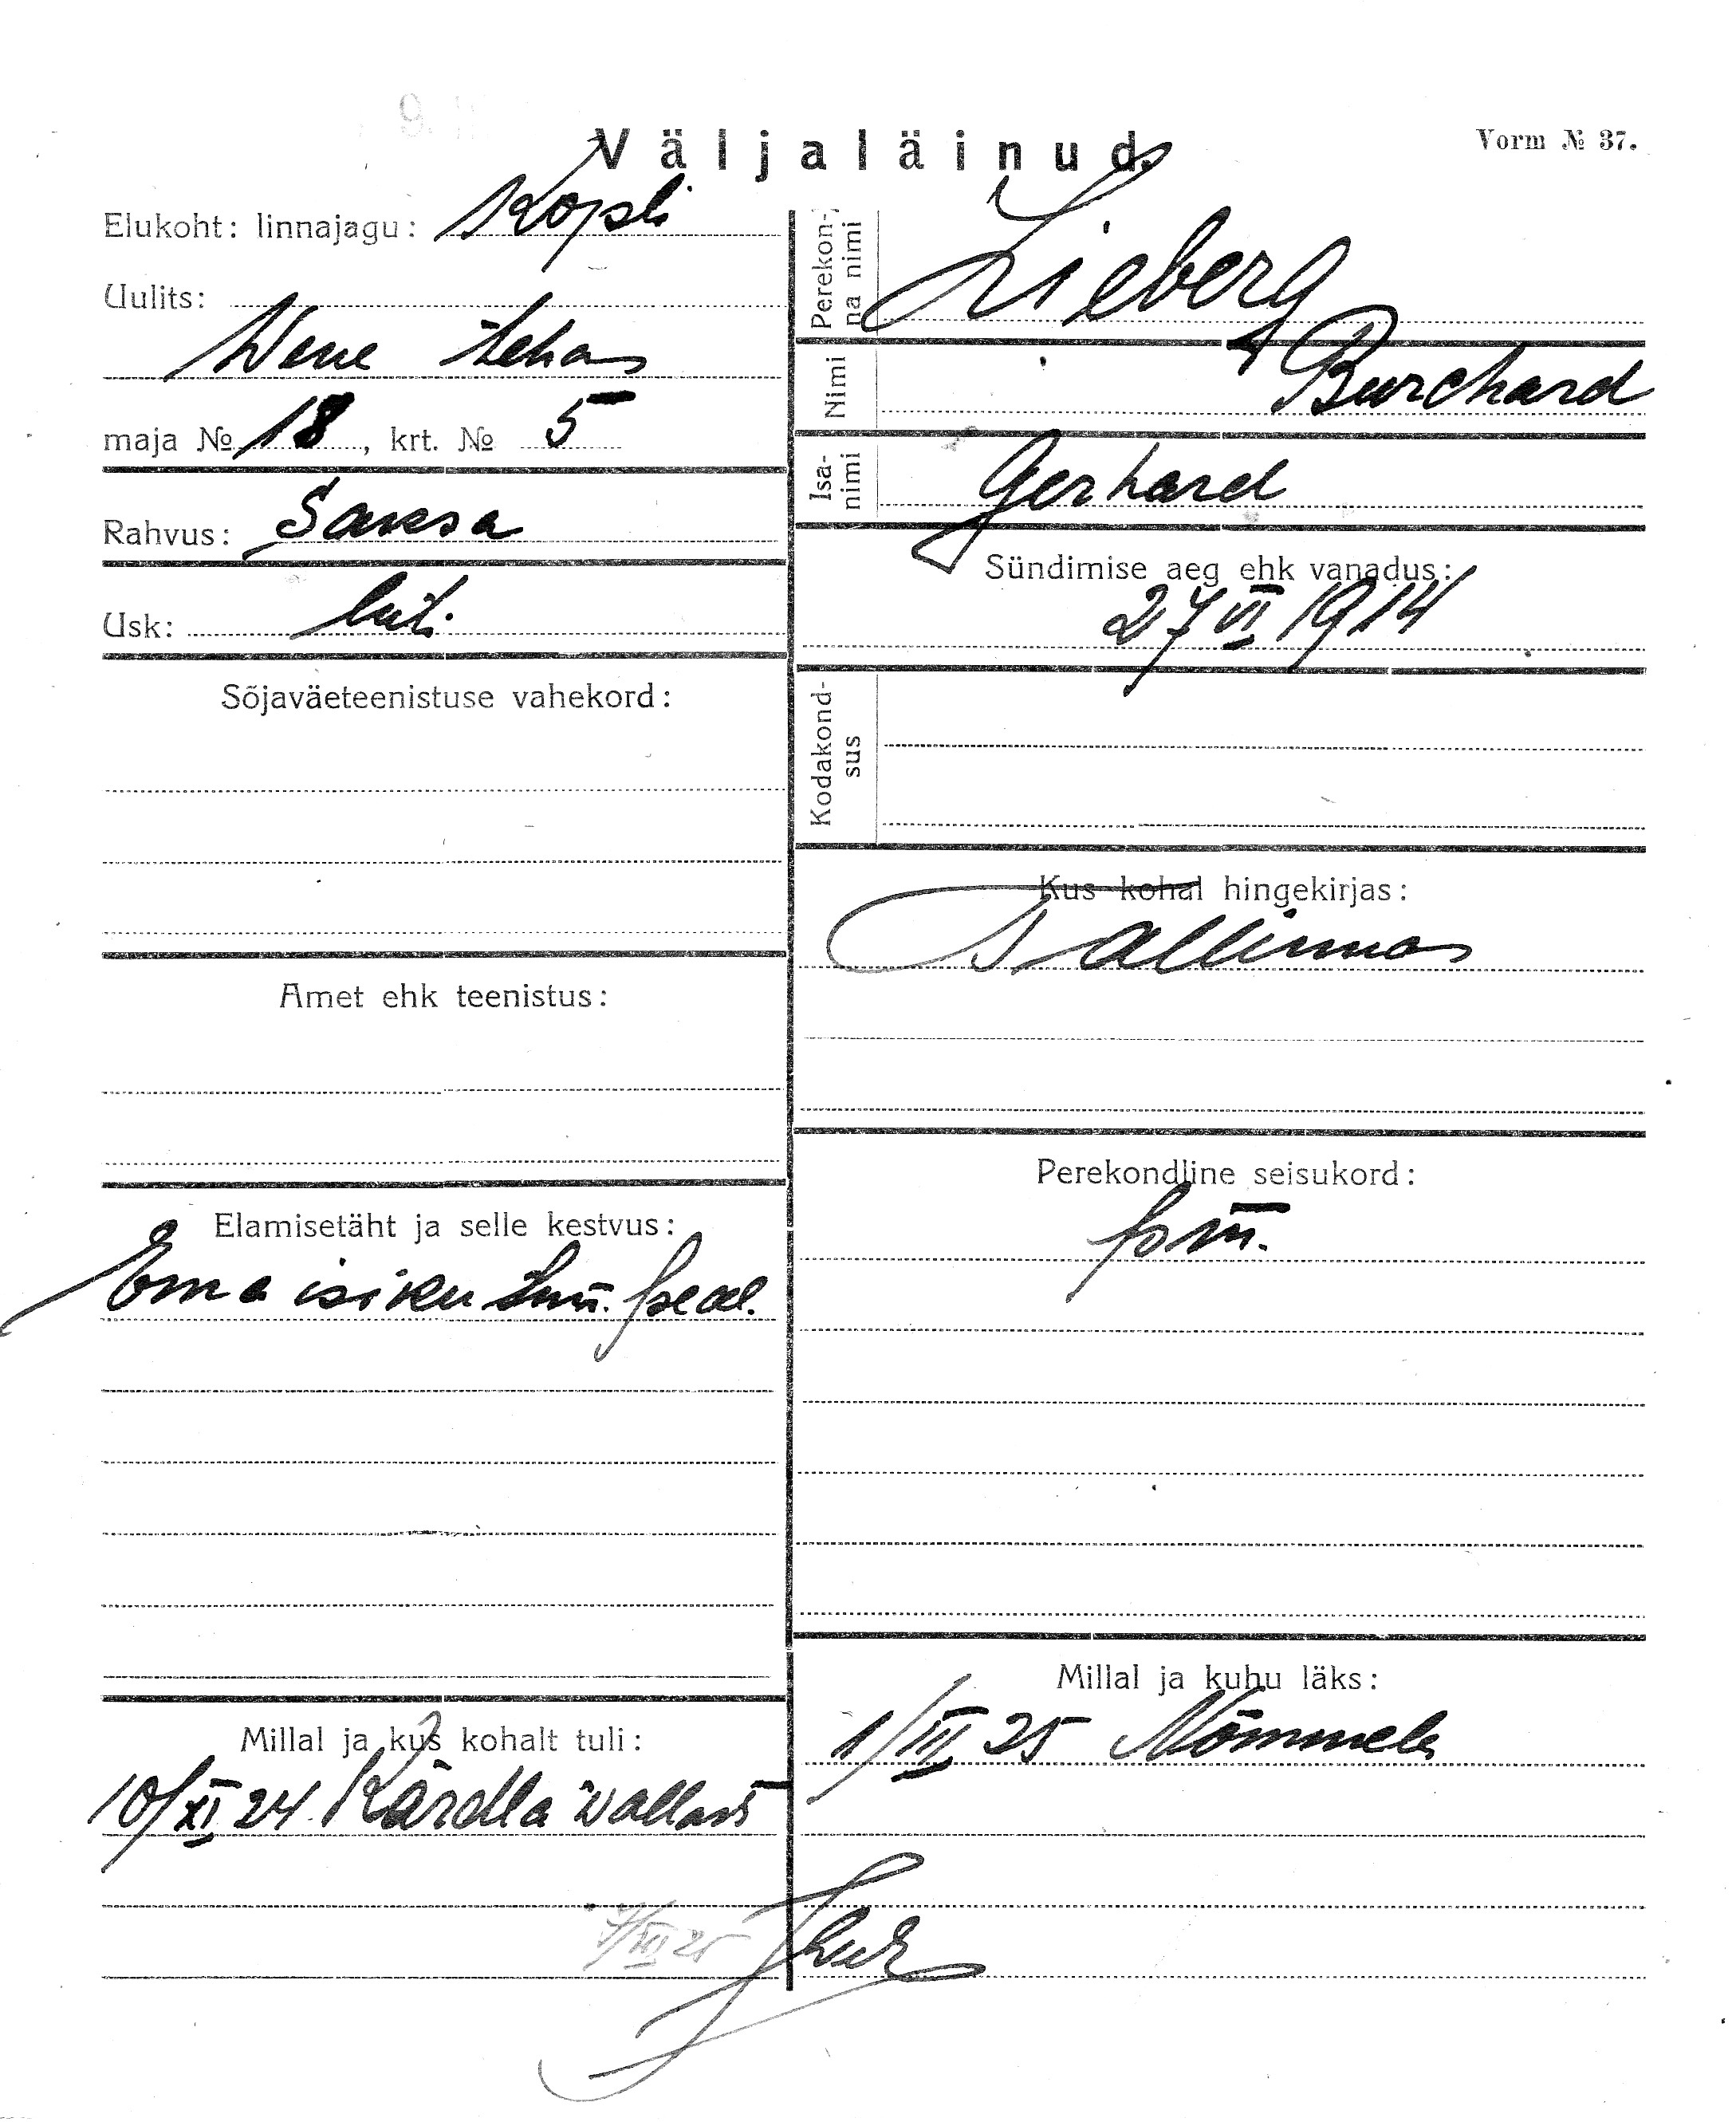 Väljaläinud.
Vorm № 37.
Elukoht: linnajagu: Kopli
Uulits:
Wene tehas
maja № 18, krt. № 5
Rahvus: Saksa
Usk: lut.
Sõjaväeteenistuse vahekord:
Amet ehk teenistus:
Elamisetäht ja selle kestvus:
Ema isiku tun. peal.
Millal ja kus kohalt tuli:
10/XI 24 Kärdla wallast
Perekonna nimi
Lieberg
Nimi
Burchard
Isanimi
Gerhard
Sündimise aeg ehk vanadus:
27 VI 1914
Kodakondsus
Kus kohal hingekirjas:
Tallinnas
Perekondline seisukord:
Millal ja kuhu läks:
1/III 25 Nõmmele